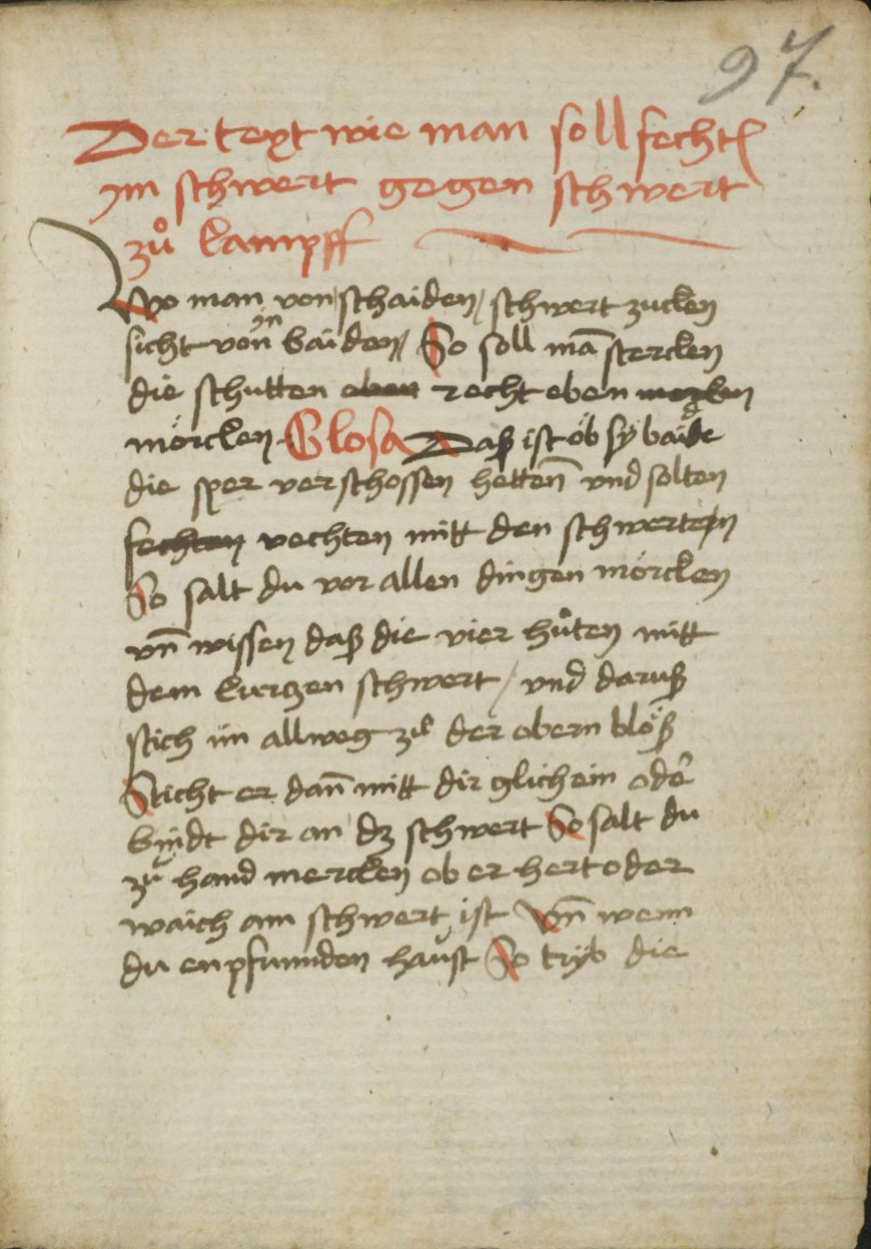 97.
Der text wie man soll fechtē
im schwert gegen schwert
zů kampff
Wo man von schaiden / schwert zucken
sicht von in baiden / So soll mā stercken
die schutten oben recht eben mercken
mörcken Glosa Daß ist öb sy baide
die sper verschossen hetten̄ vnd solten
fechten vechten mitt den schwerten
So salt du vor allen dingen mörcken
vn̄ wissen daß die vier hůten mitt
dem kurtzen schwert / vnd daruß
stich im allweg zů der obern blöß
Sticht er dan̄ mitt dir glich ein oder
bindt dir an dz schwert So salt du
zů hand mercken ob er hert oder
waich am schwert ist Vn̄ wenn
du enpfunnden haust So tryb die